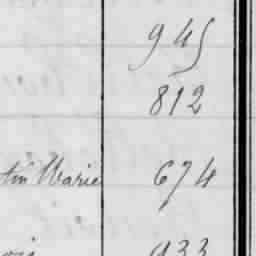 945
812
tin Marie 674
933